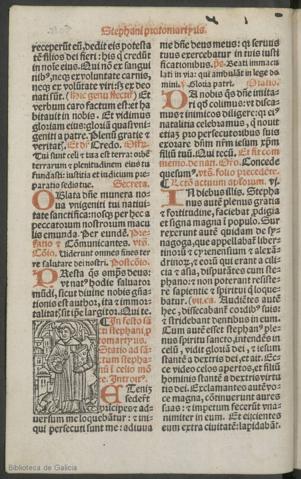 Stephani protomartyris.
receperūt eū, dedit eis potestā
tē filios dei fieri: his q̄ credūt
in noīe eius. Qui nō ex sangui
nibꝰ, neqꝫ ex voluntate carnis,
neqꝫ ex volūtate viri: sꝫ ex deo
nati sūt. (Hic genu flectit) Et
verbum caro factum est: et ha
bitauit in nobis. Et vidimus
gloriam eius: gloriā quasi vni
geniti a patre. Plenū gratie et
veritatꝭ. Credo.
Tui sunt celi et tua est terra: orbē
terrarum et plenitudinem eius tu
fundasti: iustitia et iudicium pre
paratio sedis tue. Secreta.
OBlata dñe munera no
ua vnigeniti tui natiui
tate sanctifica: nosqꝫ per hec a
peccatorum nostrorum macu
lis emunda. Per eundē.
Cōmunicantes.
Viderunt omnes fines ter
re salutare dei nostri. Postcōio.
PResta q̄s omp̄s deus:
vt natꝰ hodie saluator
mūdi, sicut diuine nobis gña
tionis est author, ita et immor
talitatꝭ sit ip̄e largitor. Qui te.
In festo sā
cti stephani, p
tomartyris.
Statio ad sā
ctum stepha
nū ī celio mō
te. Introitꝰ.
ETenim
sederūt
principes et ad
uersum me loquebātur: et ini
qui persecuti sunt me: adiuua
me dñe deus meus: q̄ seruus
tuus exercebatur in tuis iusti
ficationibus. ps. Beati immacu
lati in via: qui ambulāt in lege do
mini. Gloria patri. Oratio.
DA nobis q̄s dñe imita
ri qd̄ colimus: vt disca
mus et inimicos diligere: q̄ eiꝰ
natalicia celebramus, q̄ nouit
etiaȝ pro persecutoribus suis
exorare dñm nr̄m iesum xp̄m
filiū tuū. Qui tecū. Et fit cōm
memo. de nat. Oro. Concede
quesumꝰ. vt ī folio precedēte.
Lectō actuum aplorum.
IN diebus illis. Stepha
nus autē plenus gratia
et fortitudine, faciebat pdigia
et signa magna ī populo. Sur
rexerunt autē quidam de sy
nagoga, que appellabat̄ liber
tinorū et cyrenensium et alexā
drinoꝝ, et eorū qui erant a cili
cia et asia, disputantes cum ste
phano: et non poterant resiste
re sapientie et spiritui q̄ loque
batur. Audiētes autē
hec, dissecabant̄ cordibꝰ suis:
et stridebant dentibus in eum.
Cum autē esset stephanꝰ ple
nus spiritu sancto, intendēs in
celū, vidit gloriā dei, et iesum
stantē a dextris dei, et ait. Ec
ce video celos apertos, et filiū
hominis stantē a dextris virtu
tis dei. Exclamantes autē vo
ce magna, cōtinuerunt aures
suas: et impetum fecerūt vna
nimiter in eum. Et eijcientes
eum extra ciuitatē: lapidabāt.
Biblioteca de Galicia